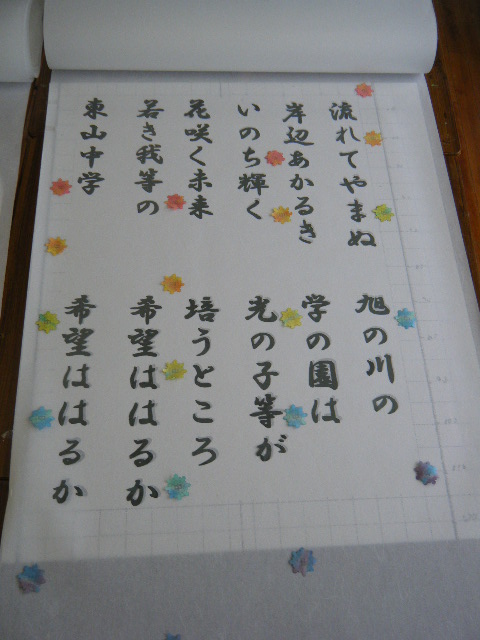 流れてやまぬ　旭の川の
岸辺あかるき　学の園は
いのち輝く　光の子等が
花咲く未来　培うところ
若き我等の　希望ははるか
東山中学　希望ははるか